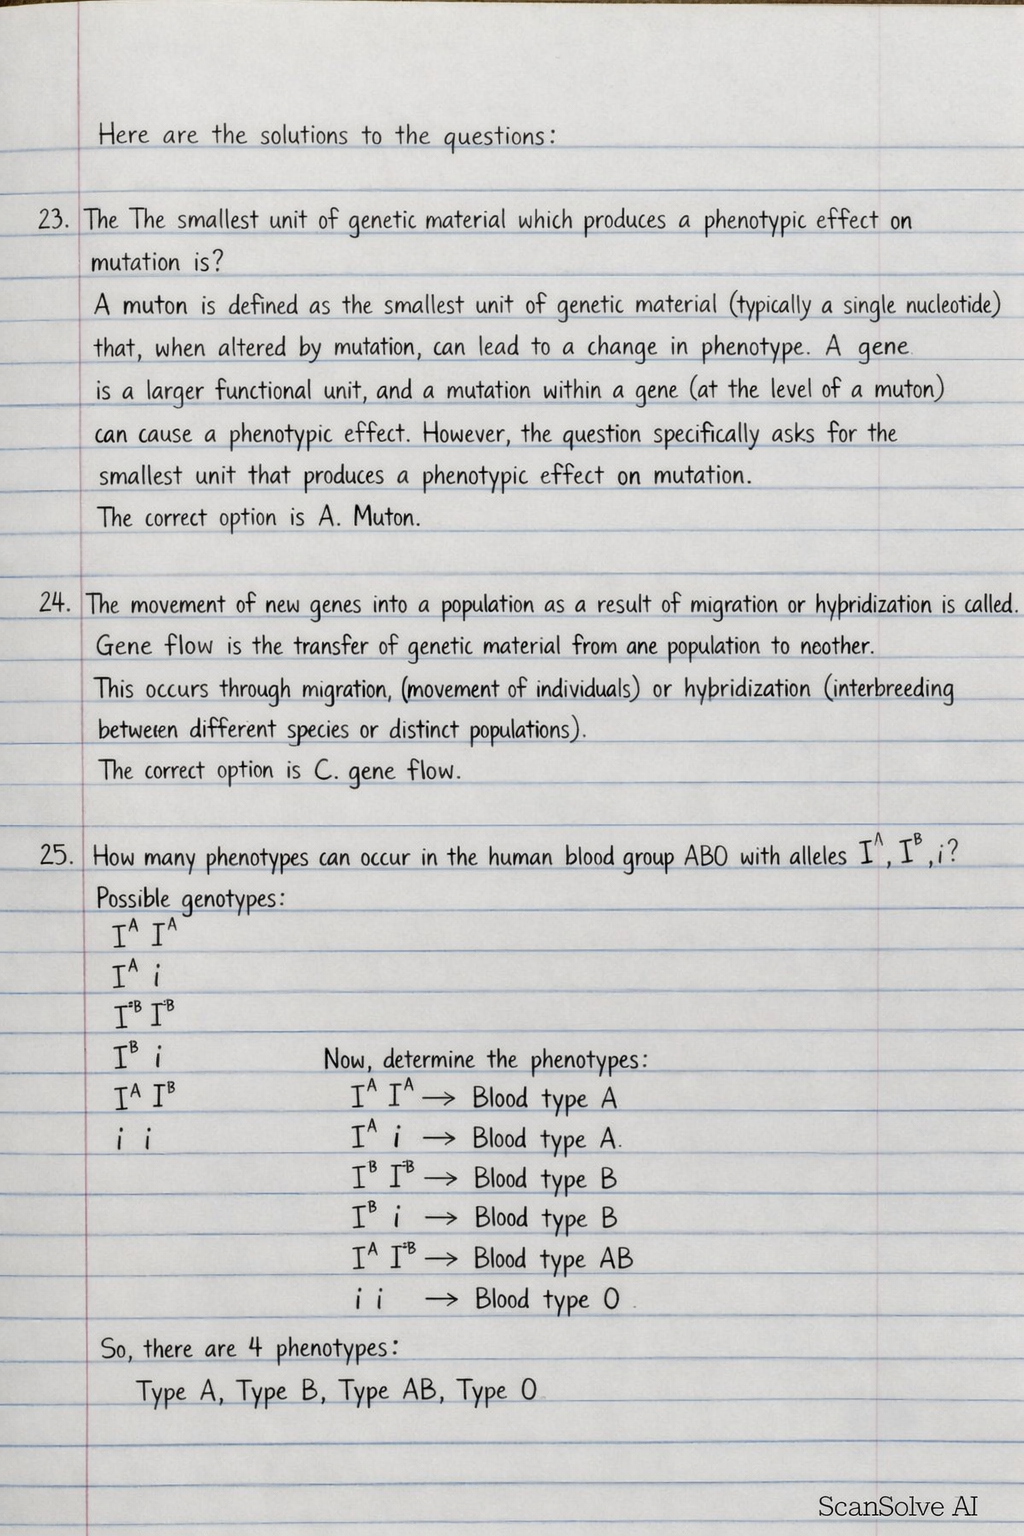 Here are the solutions to the questions:
23. The The smallest unit of genetic material which produces a phenotypic effect on
mutation is?
A muton is defined as the smallest unit of genetic material (typically a single nucleotide)
that, when altered by mutation, can lead to a change in phenotype. A gene
is a larger functional unit, and a mutation within a gene (at the level of a muton)
can cause a phenotypic effect. However, the question specifically asks for the
smallest unit that produces a phenotypic effect on mutation.
The correct option is A. Muton.
24. The movement of new genes into a population as a result of migration or hybridization is called.
Gene flow is the transfer of genetic material from ane population to neother.
This occurs through migration, (movement of individuals) or hybridization (interbreeding
between different species or distinct populations).
The correct option is C. gene flow.
25. How many phenotypes can occur in the human blood group ABO with alleles Iᴬ, Iᴮ, i?
Possible genotypes:
Iᴬ Iᴬ
Iᴬ i
Iᴮ Iᴮ
Iᴮ i
Iᴬ Iᴮ
i i
Now, determine the phenotypes:
Iᴬ Iᴬ → Blood type A
Iᴬ i → Blood type A.
Iᴮ Iᴮ → Blood type B
Iᴮ i → Blood type B
Iᴬ Iᴮ → Blood type AB
i i → Blood type O
So, there are 4 phenotypes:
Type A, Type B, Type AB, Type O
ScanSolve AI